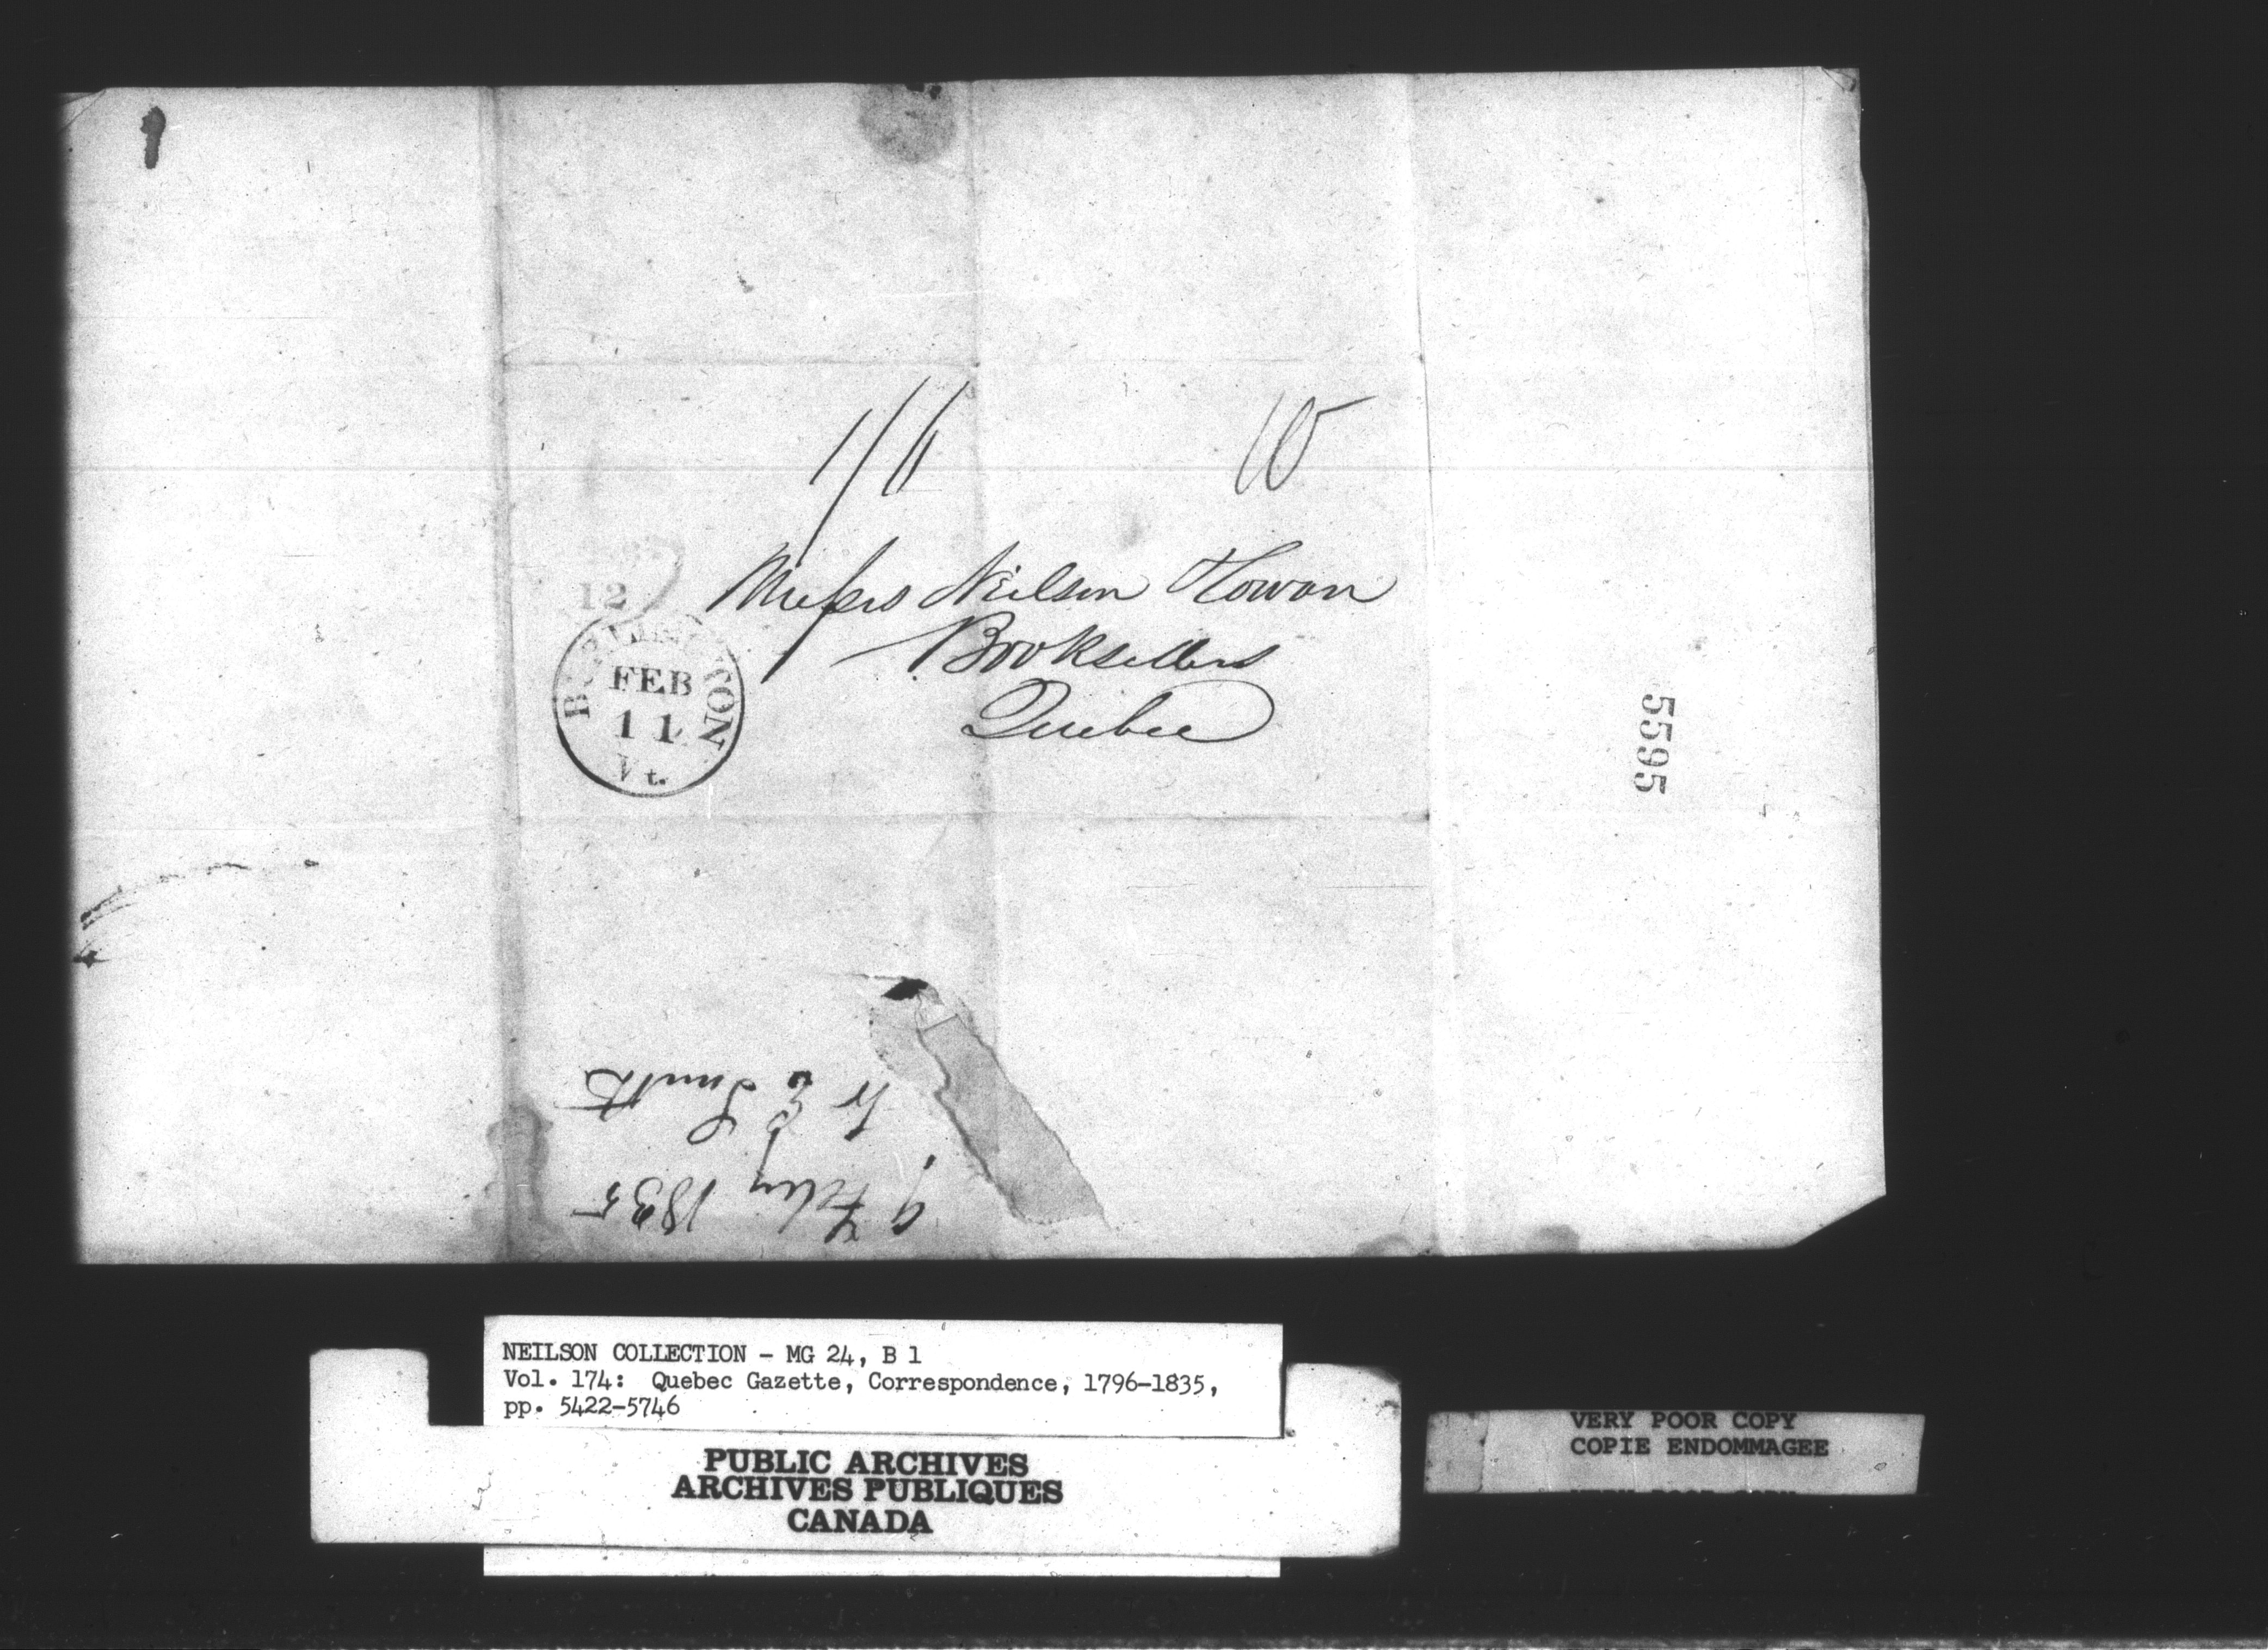 1/6 10
Messrs Neilson Cowan
Booksellers
Quebec
12
BURLINGTON
FEB
11
Vt.
5595
9 Feby 1835
E Smith
NEILSON COLLECTION - MG 24, B 1
Vol. 174: Quebec Gazette, Correspondence, 1796-1835,
pp. 5422-5746
PUBLIC ARCHIVES
ARCHIVES PUBLIQUES
CANADA
VERY POOR COPY
COPIE ENDOMMAGEE